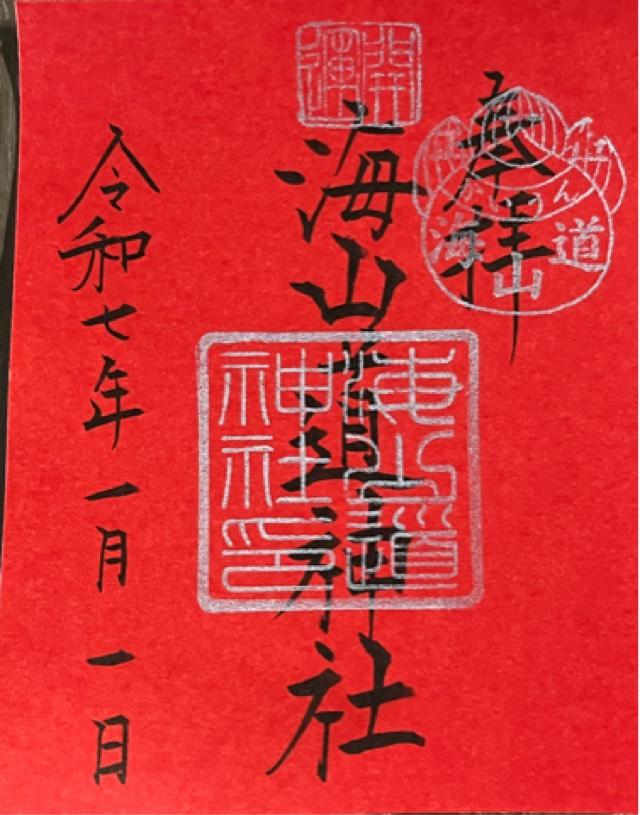 奉拝
海山道
開運
海山道神社
海山道神社印
令和七年一月一日